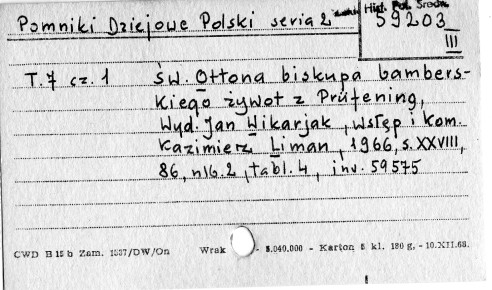 Pomniki Dziejowe Polski seria 2
Hist. Pol. Średn.
59203
III
T.7 cz.1 św. Ottona biskupa bambers-
kiego żywot z Prüfening,
Wyd. Jan Wikarjak, wstęp i kom.
Kazimierz Liman, 1966, s. XXVIII,
86, nlb. 2, tabl. 4, inv. 59575
CWD B 15 b Zam. 1537/DW/On Wrak - 5.040.000 - Karton 5 kl. 180 g. - 10.XII.68.